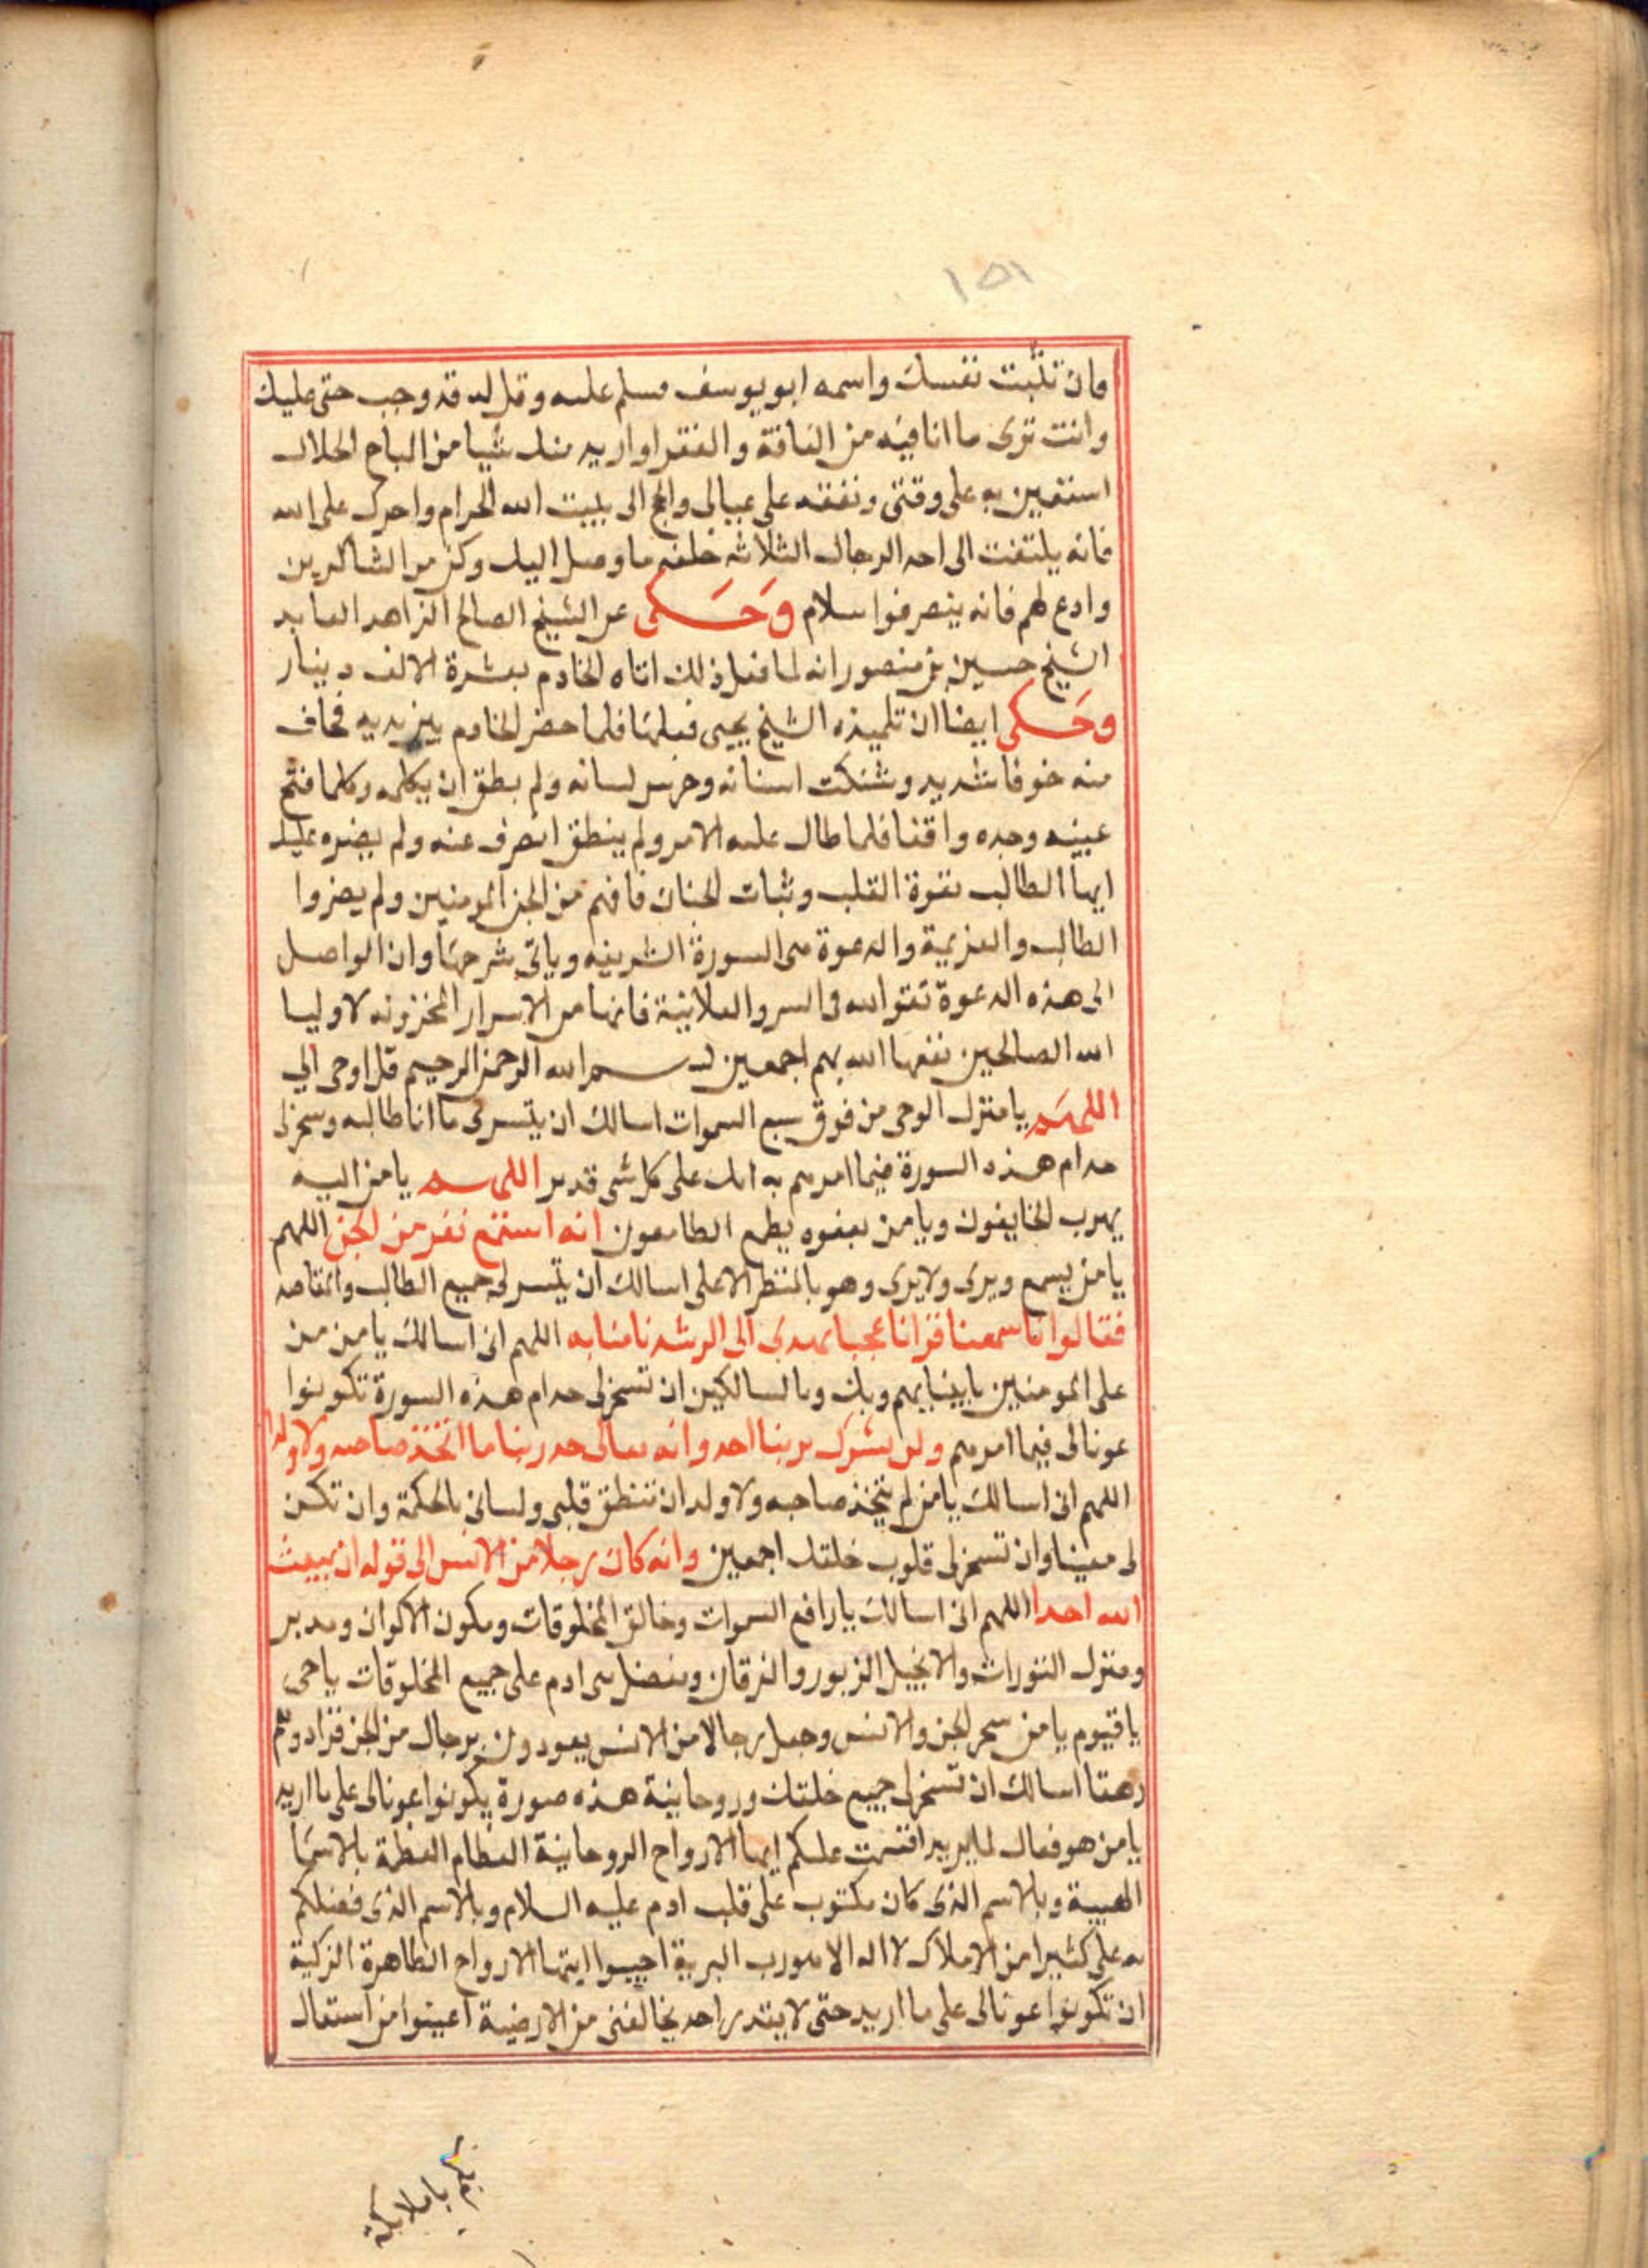 ١٥١
وان تثبت نفسك واسمه ابو يوسف فسلم عليه وقل له قد وجب حقى عليك
وانت ترى ما انا فيه من الفاقة والفقر اواريد منك شيا من المباح الحلال
استعين به على وقتى ونفقه على عيالى والحج الى بيت الله الحرام واجرك على الله
فانه يلتفت الى احد الرجال الثلاثه خلفه ما وصل اليك وكن من الشاكرين
وادع لهم فانه ينصرفوا بسلام وحكى عن الشيخ الصالح الزاهد العابد
الشيخ حسين بن منصور انه لما فعل ذلك اتاه الخادم بعشرة الالف دينار
وحكى ايضا ان تلميذه الشيخ يحيى فعلها فلما حضر الخادم بين يديه فخاف
منه خوفا شديد وشتكت اسنانه وخرس لسانه ولم يطق ان يكلمه وكلما فتح
عينيه وجده واقفا فلما طال عليه الامر ولم ينطق انصرف عنه ولم يضره عليك
ايها الطالب بقوة القلب وثبات الجنان فانهم من الجن المومنين ولم يضروا
الطالب والعزيمة والدعوة هى السورة الشريفه وياتى شرحها وان الواصل
الى هذه الدعوة تقو الله فى السر والعلانية فانها من الاسرار المخزونه لاوليا
الله الصالحين نفعنا الله بهم اجمعين بسم الله الرحمن الرحيم قل اوحى الي
اللهم يا منزل الوحى من فوق سبع السموات اسالك ان يتسر لى ما انا طالبه وسخر لى
خدام هذه السورة فيما امرهم به انك على كل شى قدير اللهم يا من اليه
يهرب الخايفون ويا من بعفوه يطمع الطامعون انه استمع نفر من الجن اللهم
يا من يسمع ويرى ولا يرى وهو بالمنظر الاعلى اسالك ان تيسر لى جميع الطالب والمقاصد
فقالوا انا سمعنا قرانا عجبا يهدى الى الرشد فامنا به اللهم انى اسالك يا من من
على المومنين بايمانهم وبك وبالسالكين ان تسخر لى خدام هذه السورة تكونوا
عونا لى فيما امرهم ولن نشرك بربنا احد وانه تعالى جد ربنا ما اتخذ صاحبه ولا ولدا
اللهم انى اسالك يا من لم يتخذ صاحبه ولا ولد ان تنطق قلبى ولسانى بالحكمة وان تكن
لى معينا وان تسخر لى قلوب خلقك اجمعين وانه كان رجلا من الانس الى قوله ان يبعث
الله احدا اللهم انى اسالك يا رافع السموات وخالق المخلوقات ومكون الاكوان ومدبر
ومنزل التورات والانجيل الزبور والفرقان ومفضل بنى ادم على جميع المخلوقات يا حى
يا قيوم يا من سخر الجن والانس وجعل رجالا من الانس يعودون برجال من الجن فزادوهم
رهقا اسالك ان تسخر لى جميع خلقك وروحانية هذه صورة يكونوا عونا لى على ما اريد
يا من هو فعال لما يريد اقسمت عليكم ايها الارواح الروحانية العظام العظمة بالاسما
المهيبة وبالاسم الذى كان مكتوب على قلب ادم عليه السلام وبالاسم الذى فضلكم
به على كثيرا من الاملاك لا اله الا هو رب البرية اجيبوا ايتها الارواح الطاهرة الزكية
ان تكونوا عونا لى على ما اريد حتى لا يقدر احد يخالفنى من الارضية اعينوا من استعان
بكم يا ملايكة